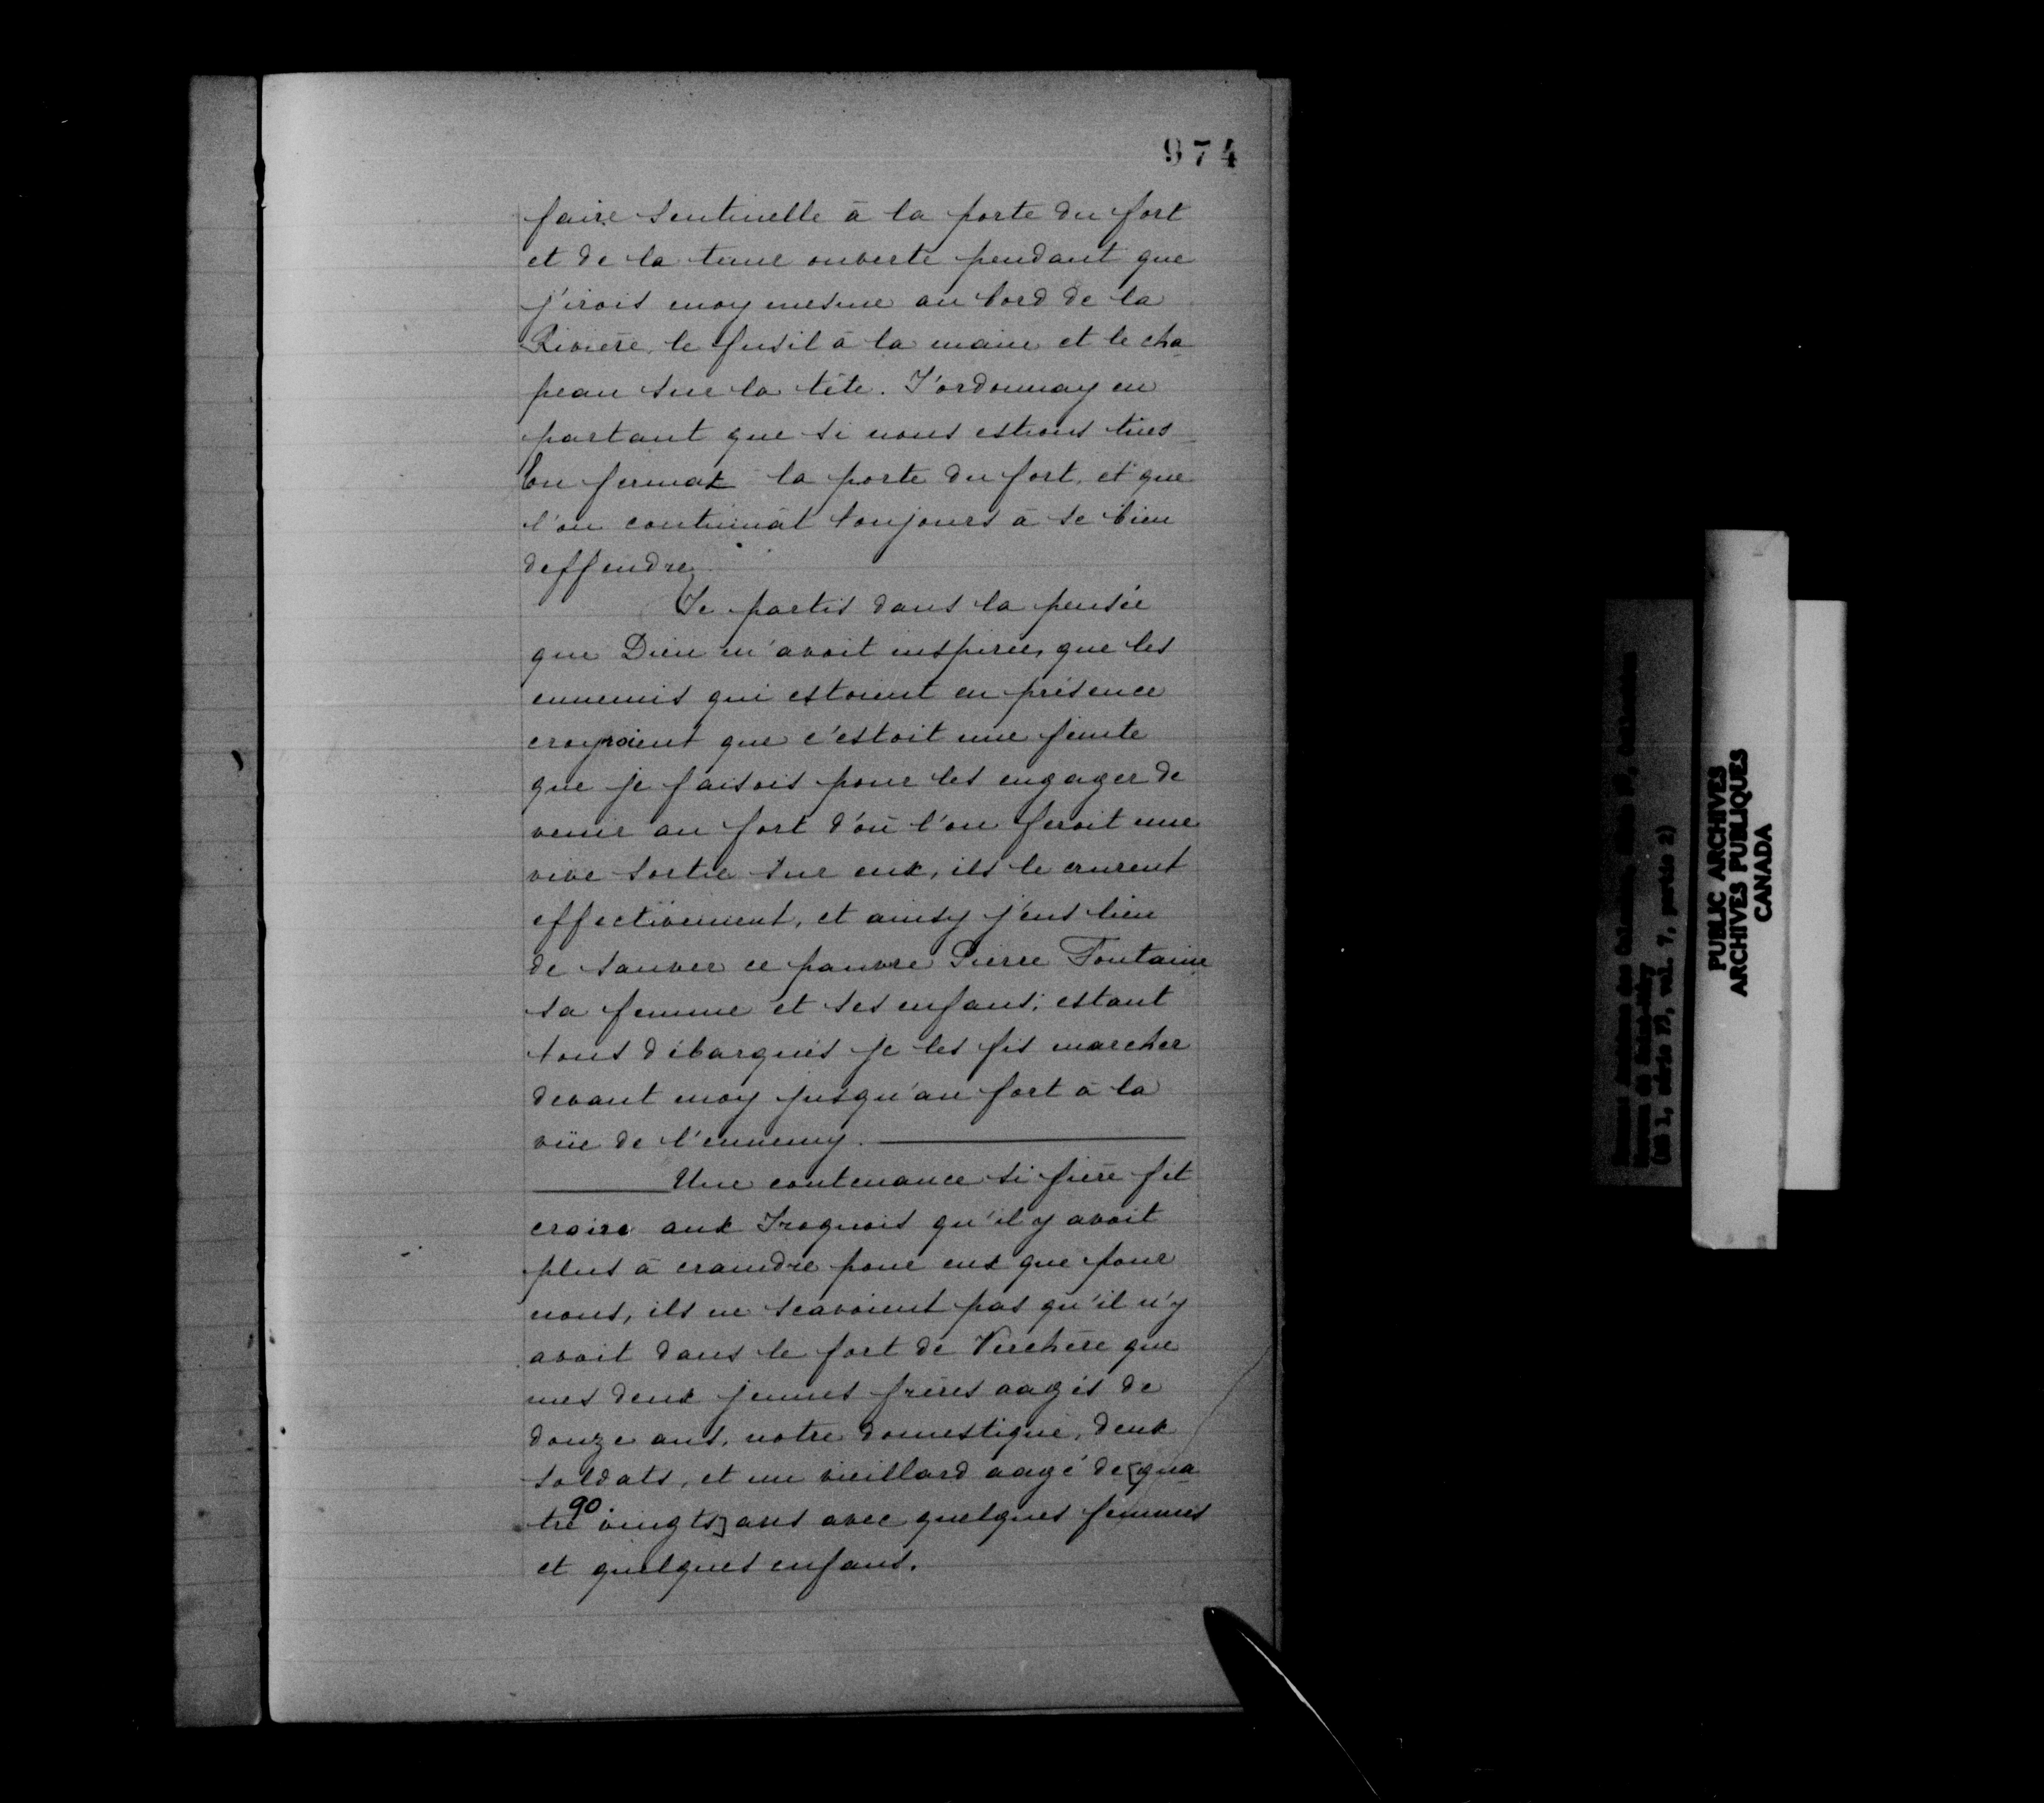 974
faire sentinelle à la porte du fort
et de la tenir ouverte pendant que
j'irois moy mesme au bord de la
Rivière, le fusil à la main et le cha
peau sur la tête. J'ordonnay en
partant que si nous estions tués
l'on fermat la porte du fort, et que
l'on continuât toujours à se bien
deffendre
Je partis dans la pensée
que Dieu m'avoit inspirée, que les
ennemis qui estoient en présence
croyroient que c'estoit une feinte
que je faisois pour les engager de
venir au fort d'où l'on feroit une
vive sortie sur eux, ils le crurent
effectivement, et ainsy j'eus lieu
de sauver ce pauvre Pierre Fontaine
sa femme et ses enfans; estant
tous débarqués je les fis marcher
devant moy jusqu'au fort à la
vüe de l'ennemy.
Une contenance si fière fit
croire aux Iroquois qu'il y avoit
plus à craindre pour eux que pour
nous, ils ne scavoient pas qu'il n'y
avoit dans le fort de Verchère que
mes deux jeunes frères aagés de
douze ans, notre domestique, deux
soldats, et un vieillard aagé de [qua
90
tre vingts] ans avec quelques femmes
et quelques enfans.
PUBLIC ARCHIVES
ARCHIVES PUBLIQUES
CANADA
vol. 7, partie 2)